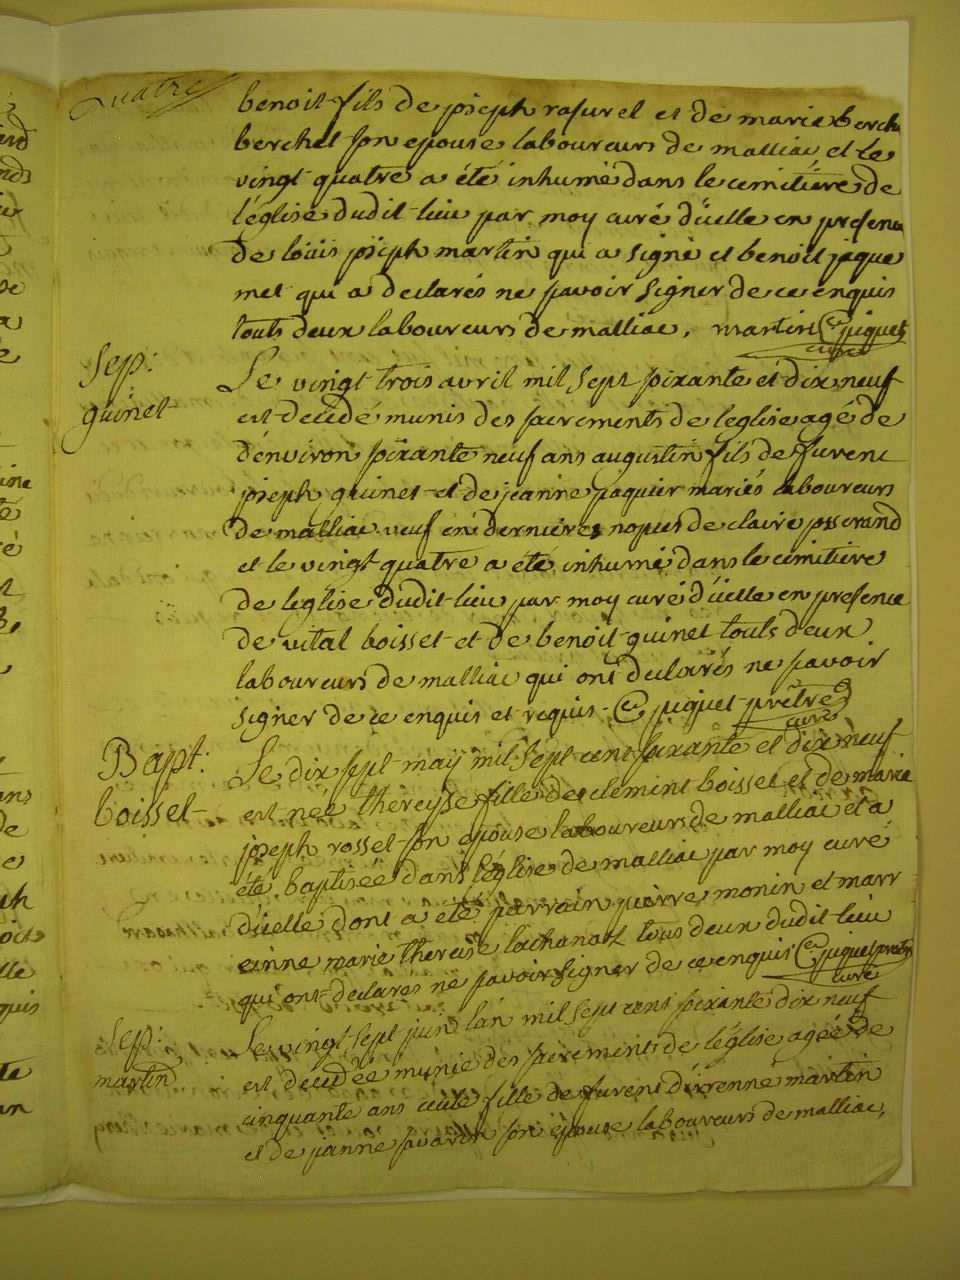 quatre
benoit fils de joseph rasurel et de marie berch
berchet son epouse laboureurs de malliac et le
vingt quatre a été inhumé dans le cemitiére de
l'église dudit lieu par moy curé d'icelle en presence
de loüis joseph martin qui a signé et benoit jaque
met qui a declarés ne savoir signer de ce enquis
touts deux laboureurs de malliac. martin C piquet
curé
Sep:
guinet
Le vingt trois avril mil sept soixante et dix neuf
est decedé munis des sacrements de leglise agé de
d'environ soixante neuf ans augustin fils de furent
joseph guinet et de jeanne paquier mariés laboureurs
de malliac veuf en derniéres nopces de claire josserand
et le vingt quatre a été inhumé dans le cimitiere
de leglise dudit lieu par moy curé d'icelle en presence
de vital boisset et de benoit guinet touts deux
laboureurs de malliac qui ont declarés ne savoir
signer de ce enquis et requis. C piquet prêtre
curé
Bapt:
boisset
Le dix sept may mil sept cent soixante et dix neuf
est née thereyse fille de clement boisset et de marie
joseph rosset son epouse laboureurs de malliac et a
été baptisée dans l'église de malliac par moy curé
d'icelle dont a été parrain pierre monin et marr
einne marie therese lachanal tous deux dudit lieu
qui ont declarés ne savoir signer de ce enquis C piquet prêtre
curé
Sep:
martin
Le vingt sept juin lan mil sept cent soixante dix neuf
est decedée munie des sacrements de l'église agée de
cinquante ans fille de furent martin
et de janne son epouse laboureurs de malliac,